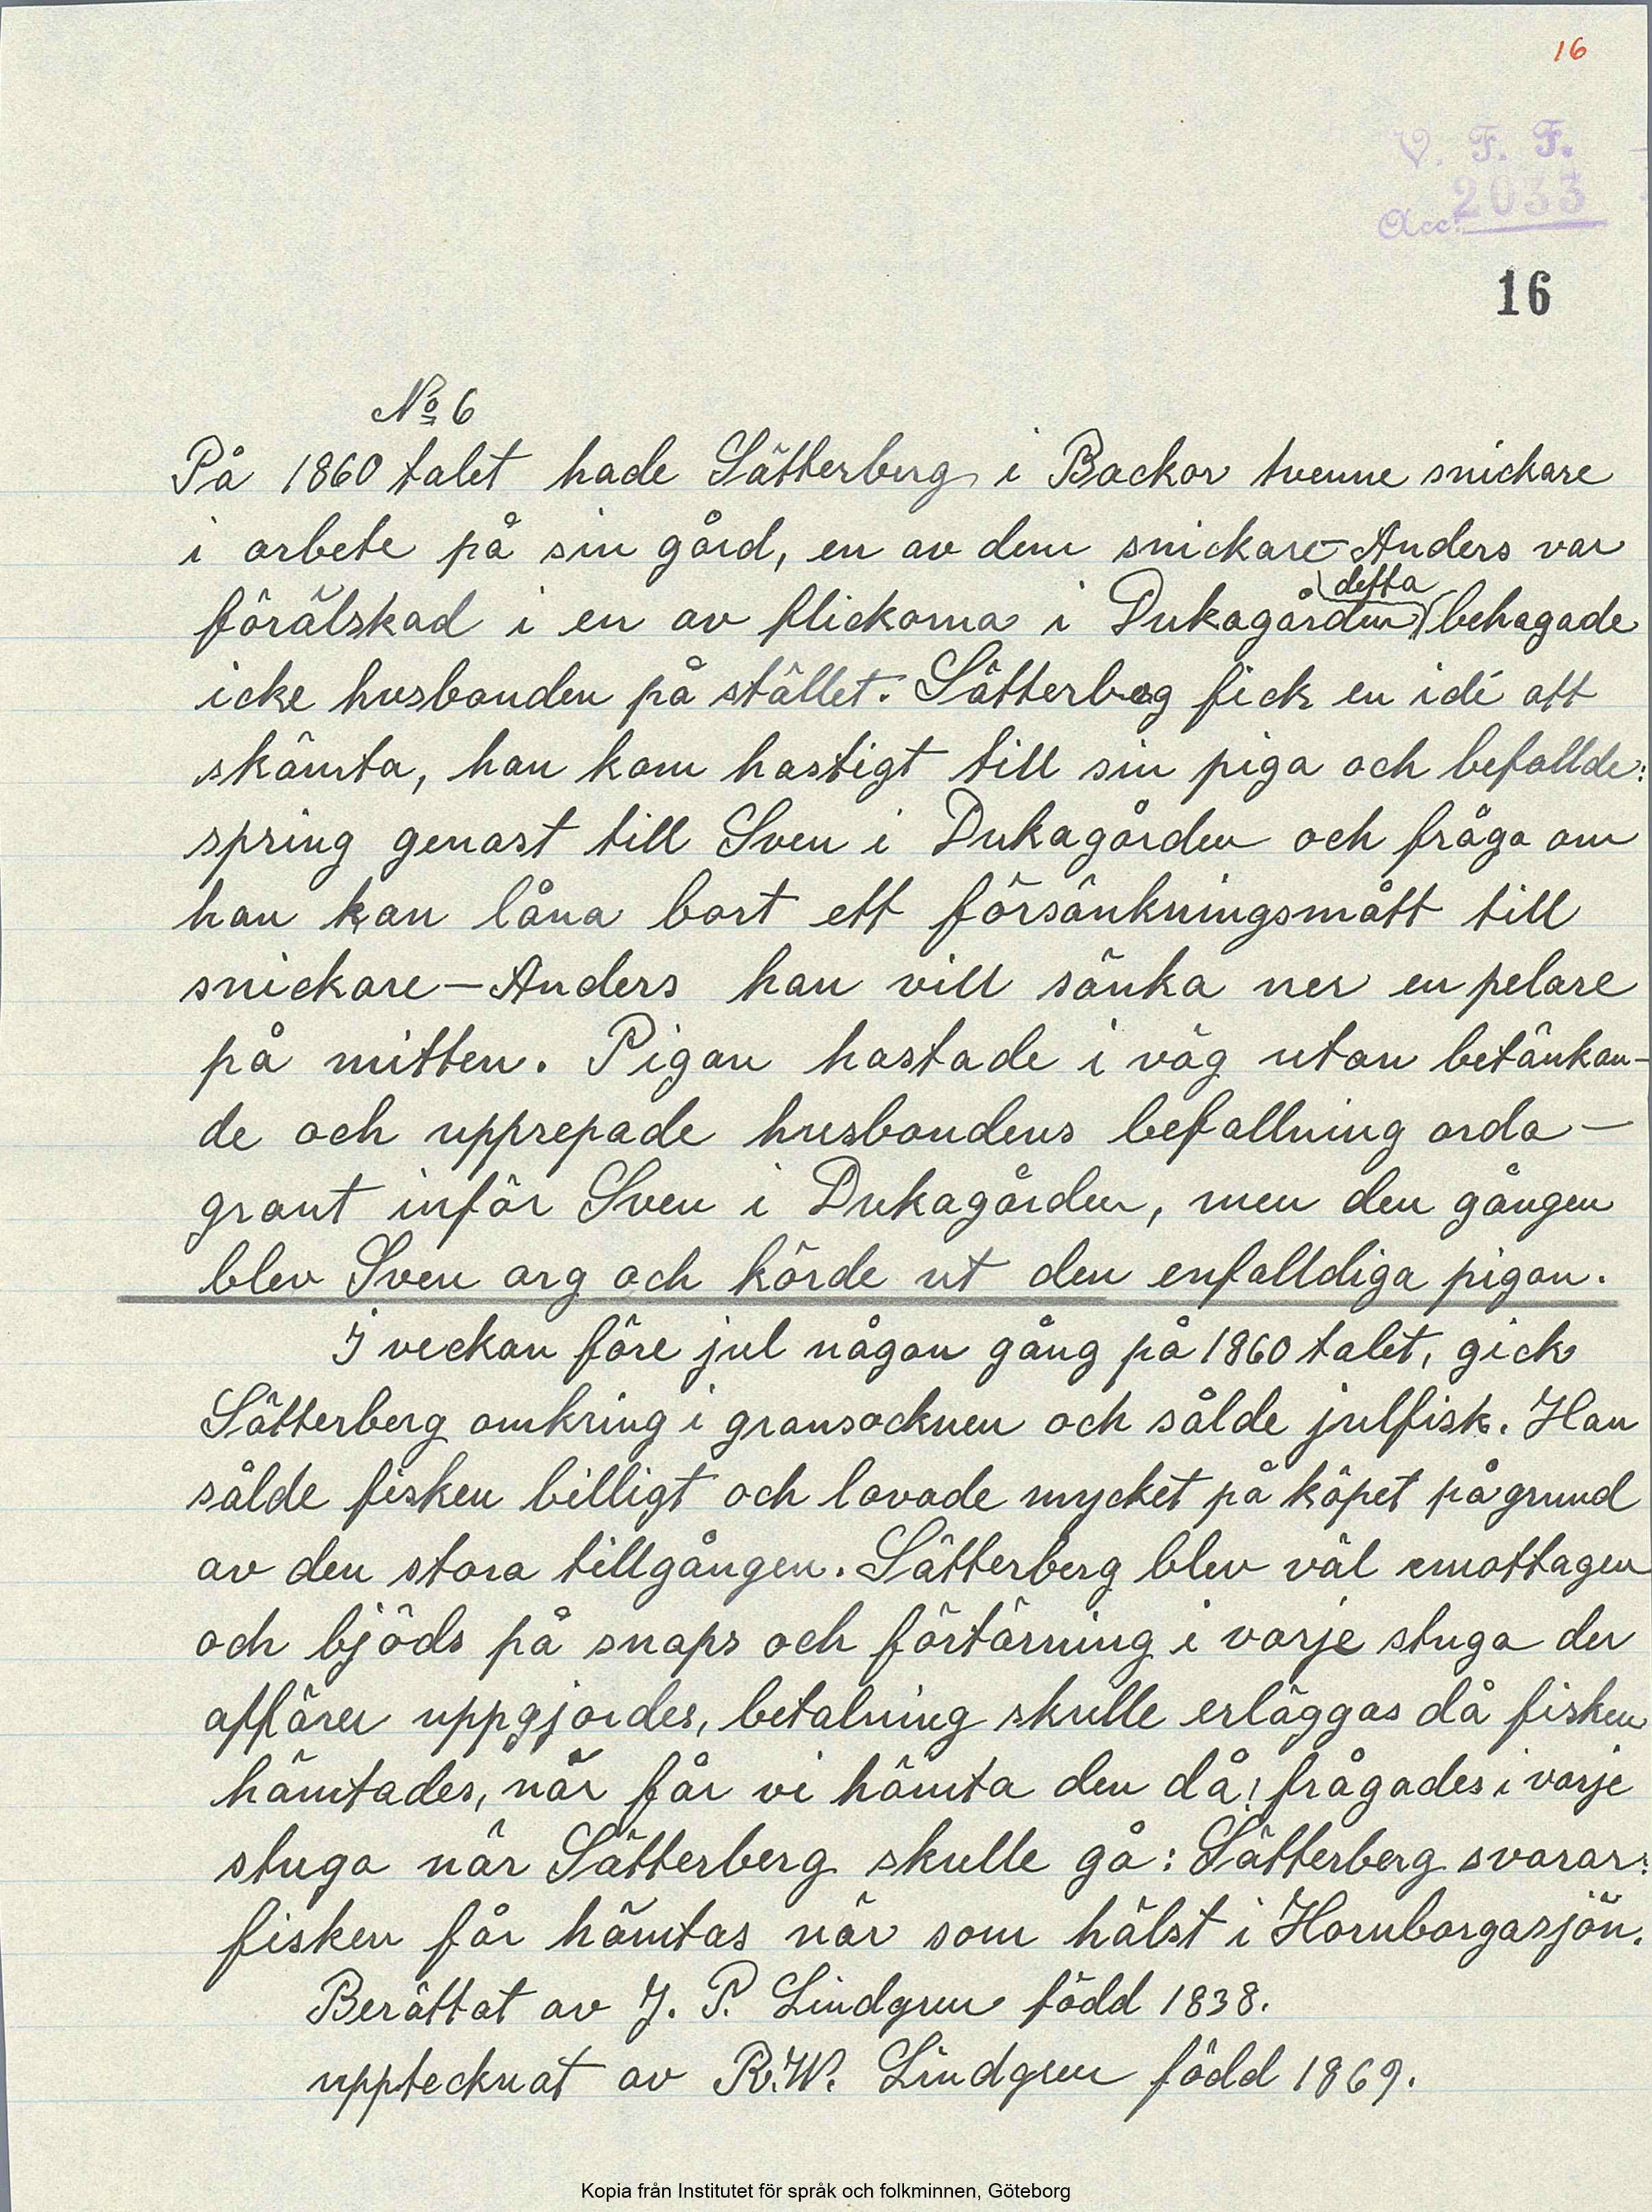 16
V. F. F.
Acc. 2033
16
No 6
På 1860 talet hade Sätterberg i Backor tvenne snickare
i arbete på sin gård, en av dem snickare-Anders var
förälskad i en av flickorna i Dukagården detta behagade
icke husbonden på stället. Sätterbeg fick en idé att
skämta, han kom hastigt till sin piga och befallde:
spring genast till Sven i Dukagården och fråga om
han kan låna bort ett försänkningsmått till
snickare-Anders han vill sänka ner en pelare
på mitten. Pigan hastade i väg utan betänkan-
de och upprepade husbondens befallning orda-
grant inför Sven i Dukagården, men den gången
blev Sven arg och körde ut den enfalldiga pigan.
I veckan före jul någon gång på 1860 talet, gick
Sätterberg omkring i gransocknen och sålde julfisk. Han
sålde fisken billigt och lovade mycket på köpet på grund
av den stora tillgången. Sätterberg blev väl emottagen
och bjöds på snaps och förtärning i varje stuga der
affärer uppgjordes, betalning skulle erläggas då fisken
hämtades, när får vi hämta den då! frågades i varje
stuga när Sätterberg skulle gå: Sätterberg svarar:
fisken får hämtas när som hälst i Hornborgasjön.
Berättat av J. P. Lindgren född 1838.
upptecknat av R.W. Lindgren född 1869.
Kopia från Institutet för språk och folkminnen, Göteborg